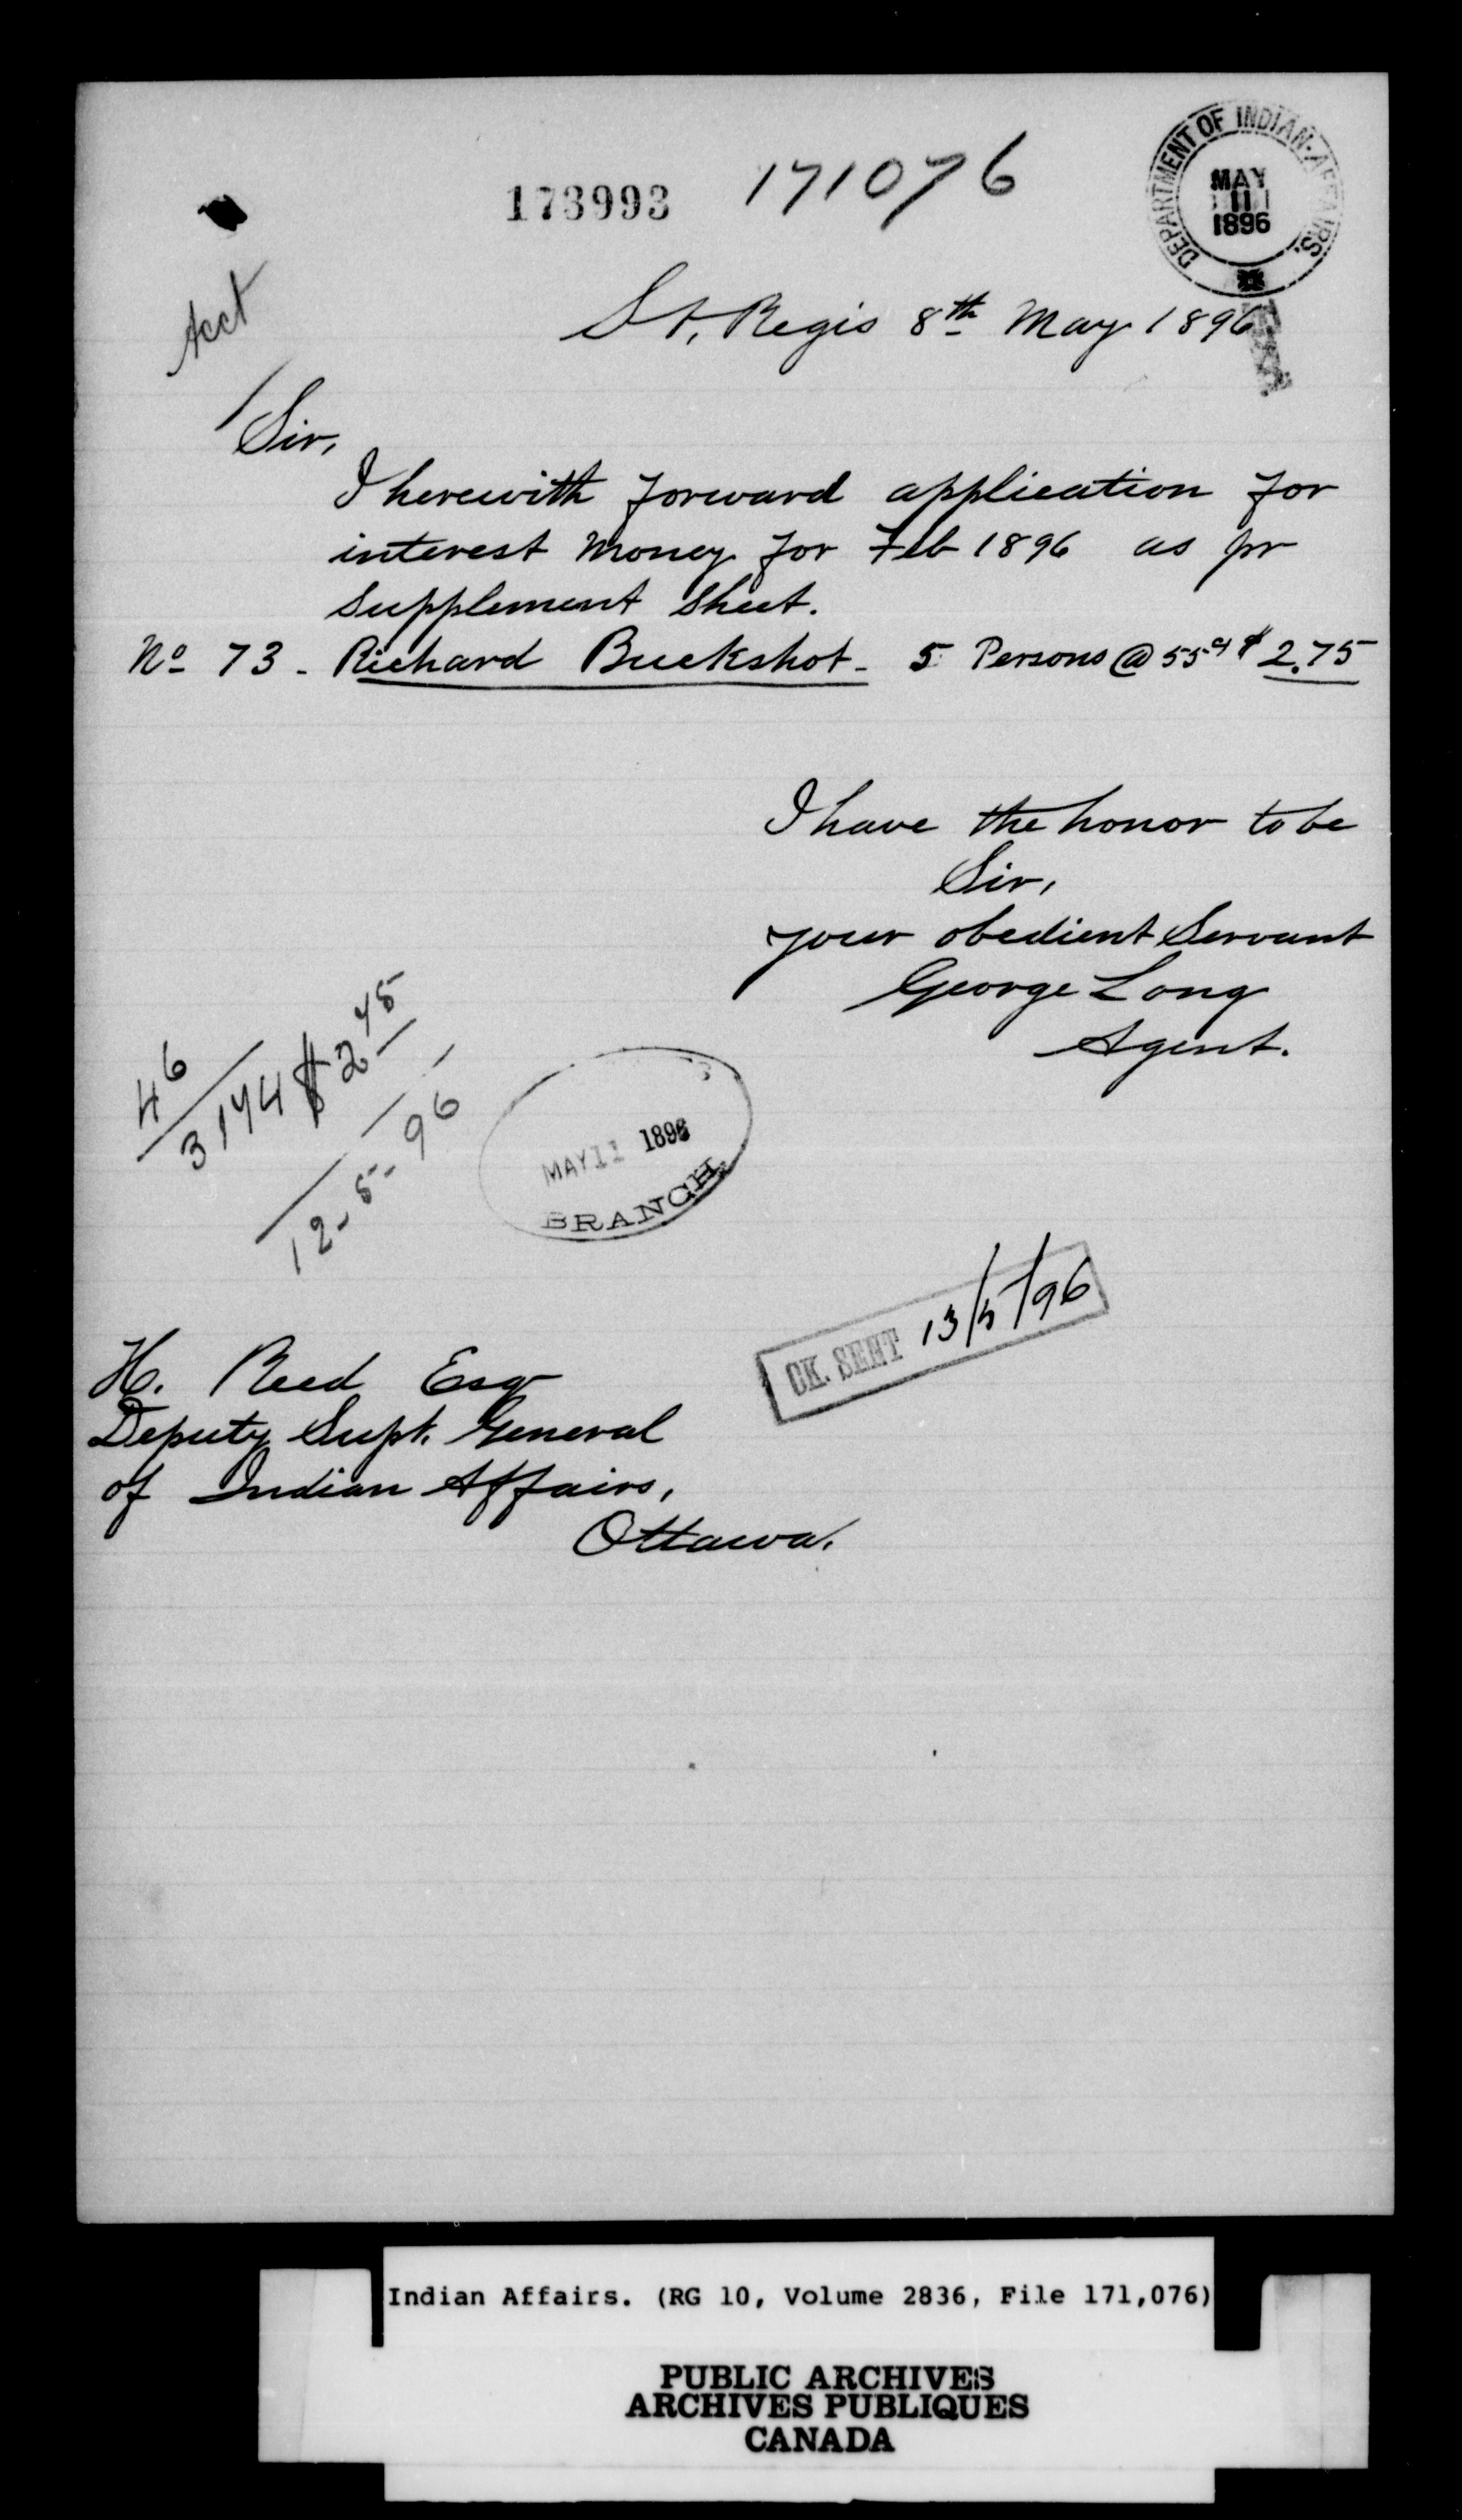 173993 171076
DEPARTMENT OF INDIAN AFFAIRS.
MAY
11
1896
Acct
St, Regis 8th May 1896
Sir,
I herewith forward application for
interest money for Feb 1896 as pr
supplement sheet.
No 73 - Richard Buckshot - 5 Persons @ 55c $ 2.75
I have the honor to be
Sir,
your obedient Servant
George Long
Agent.
46
3144 $2
12-5-96
MAY 11 1896
BRANCH
CK. SENT 13/5/96
H. Reed Esqr
Deputy Supt. General
of Indian Affairs,
Ottawa.
Indian Affairs. (RG 10, Volume 2836, File 171,076)
PUBLIC ARCHIVES
ARCHIVES PUBLIQUES
CANADA